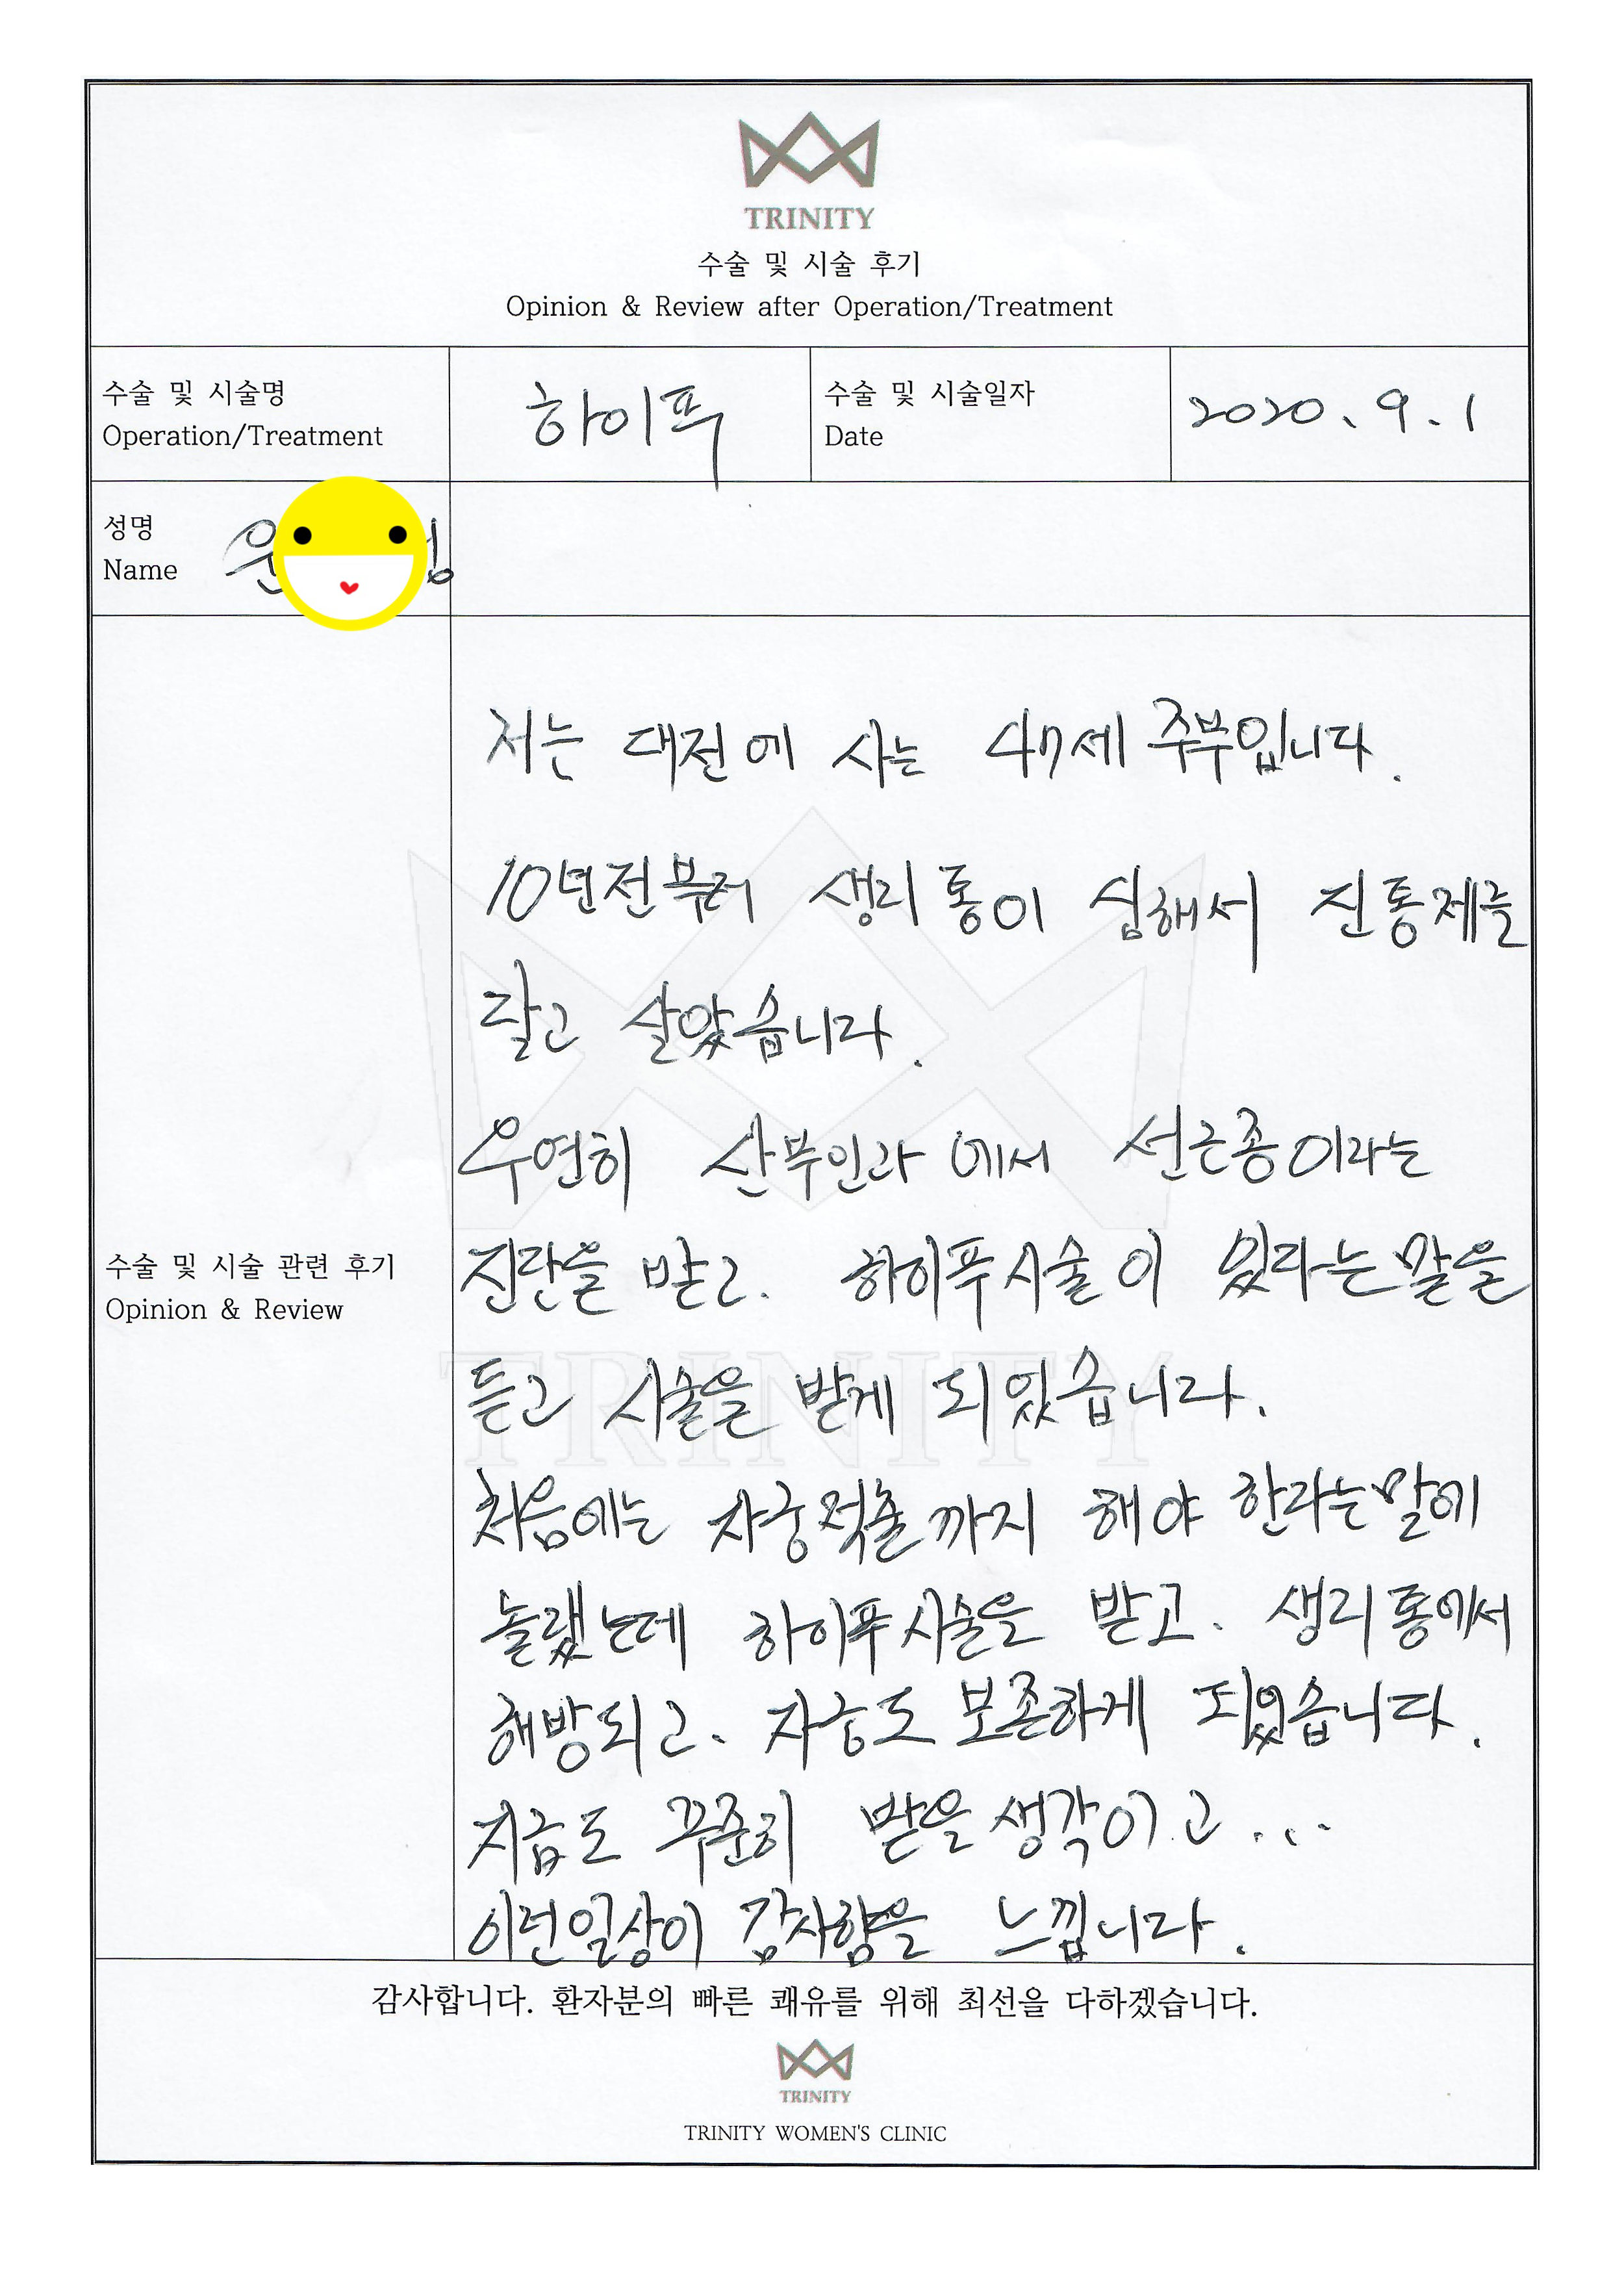 TRINITY
수술 및 시술 후기
Opinion & Review after Operation/Treatment
수술 및 시술명
Operation/Treatment
하이푸
수술 및 시술일자
Date
2020. 9. 1
성명
Name
저는 대전에 사는 47세 주부입니다.
10년전부터 생리통이 심해서 진통제를
달고 살았습니다.
우연히 산부인과에서 선근종이라는
진단을 받고. 하이푸시술이 있다는말을
듣고 시술을 받게 되었습니다.
처음에는 자궁적출까지 해야 한다는말에
놀랬는데 하이푸시술을 받고. 생리통에서
해방되고. 자궁도 보존하게 되었습니다.
지금도 꾸준히 받을 생각이고...
이런일상이 감사함을 느낍니다.
수술 및 시술 관련 후기
Opinion & Review
TRINITY
감사합니다. 환자분의 빠른 쾌유를 위해 최선을 다하겠습니다.
TRINITY
TRINITY WOMEN'S CLINIC